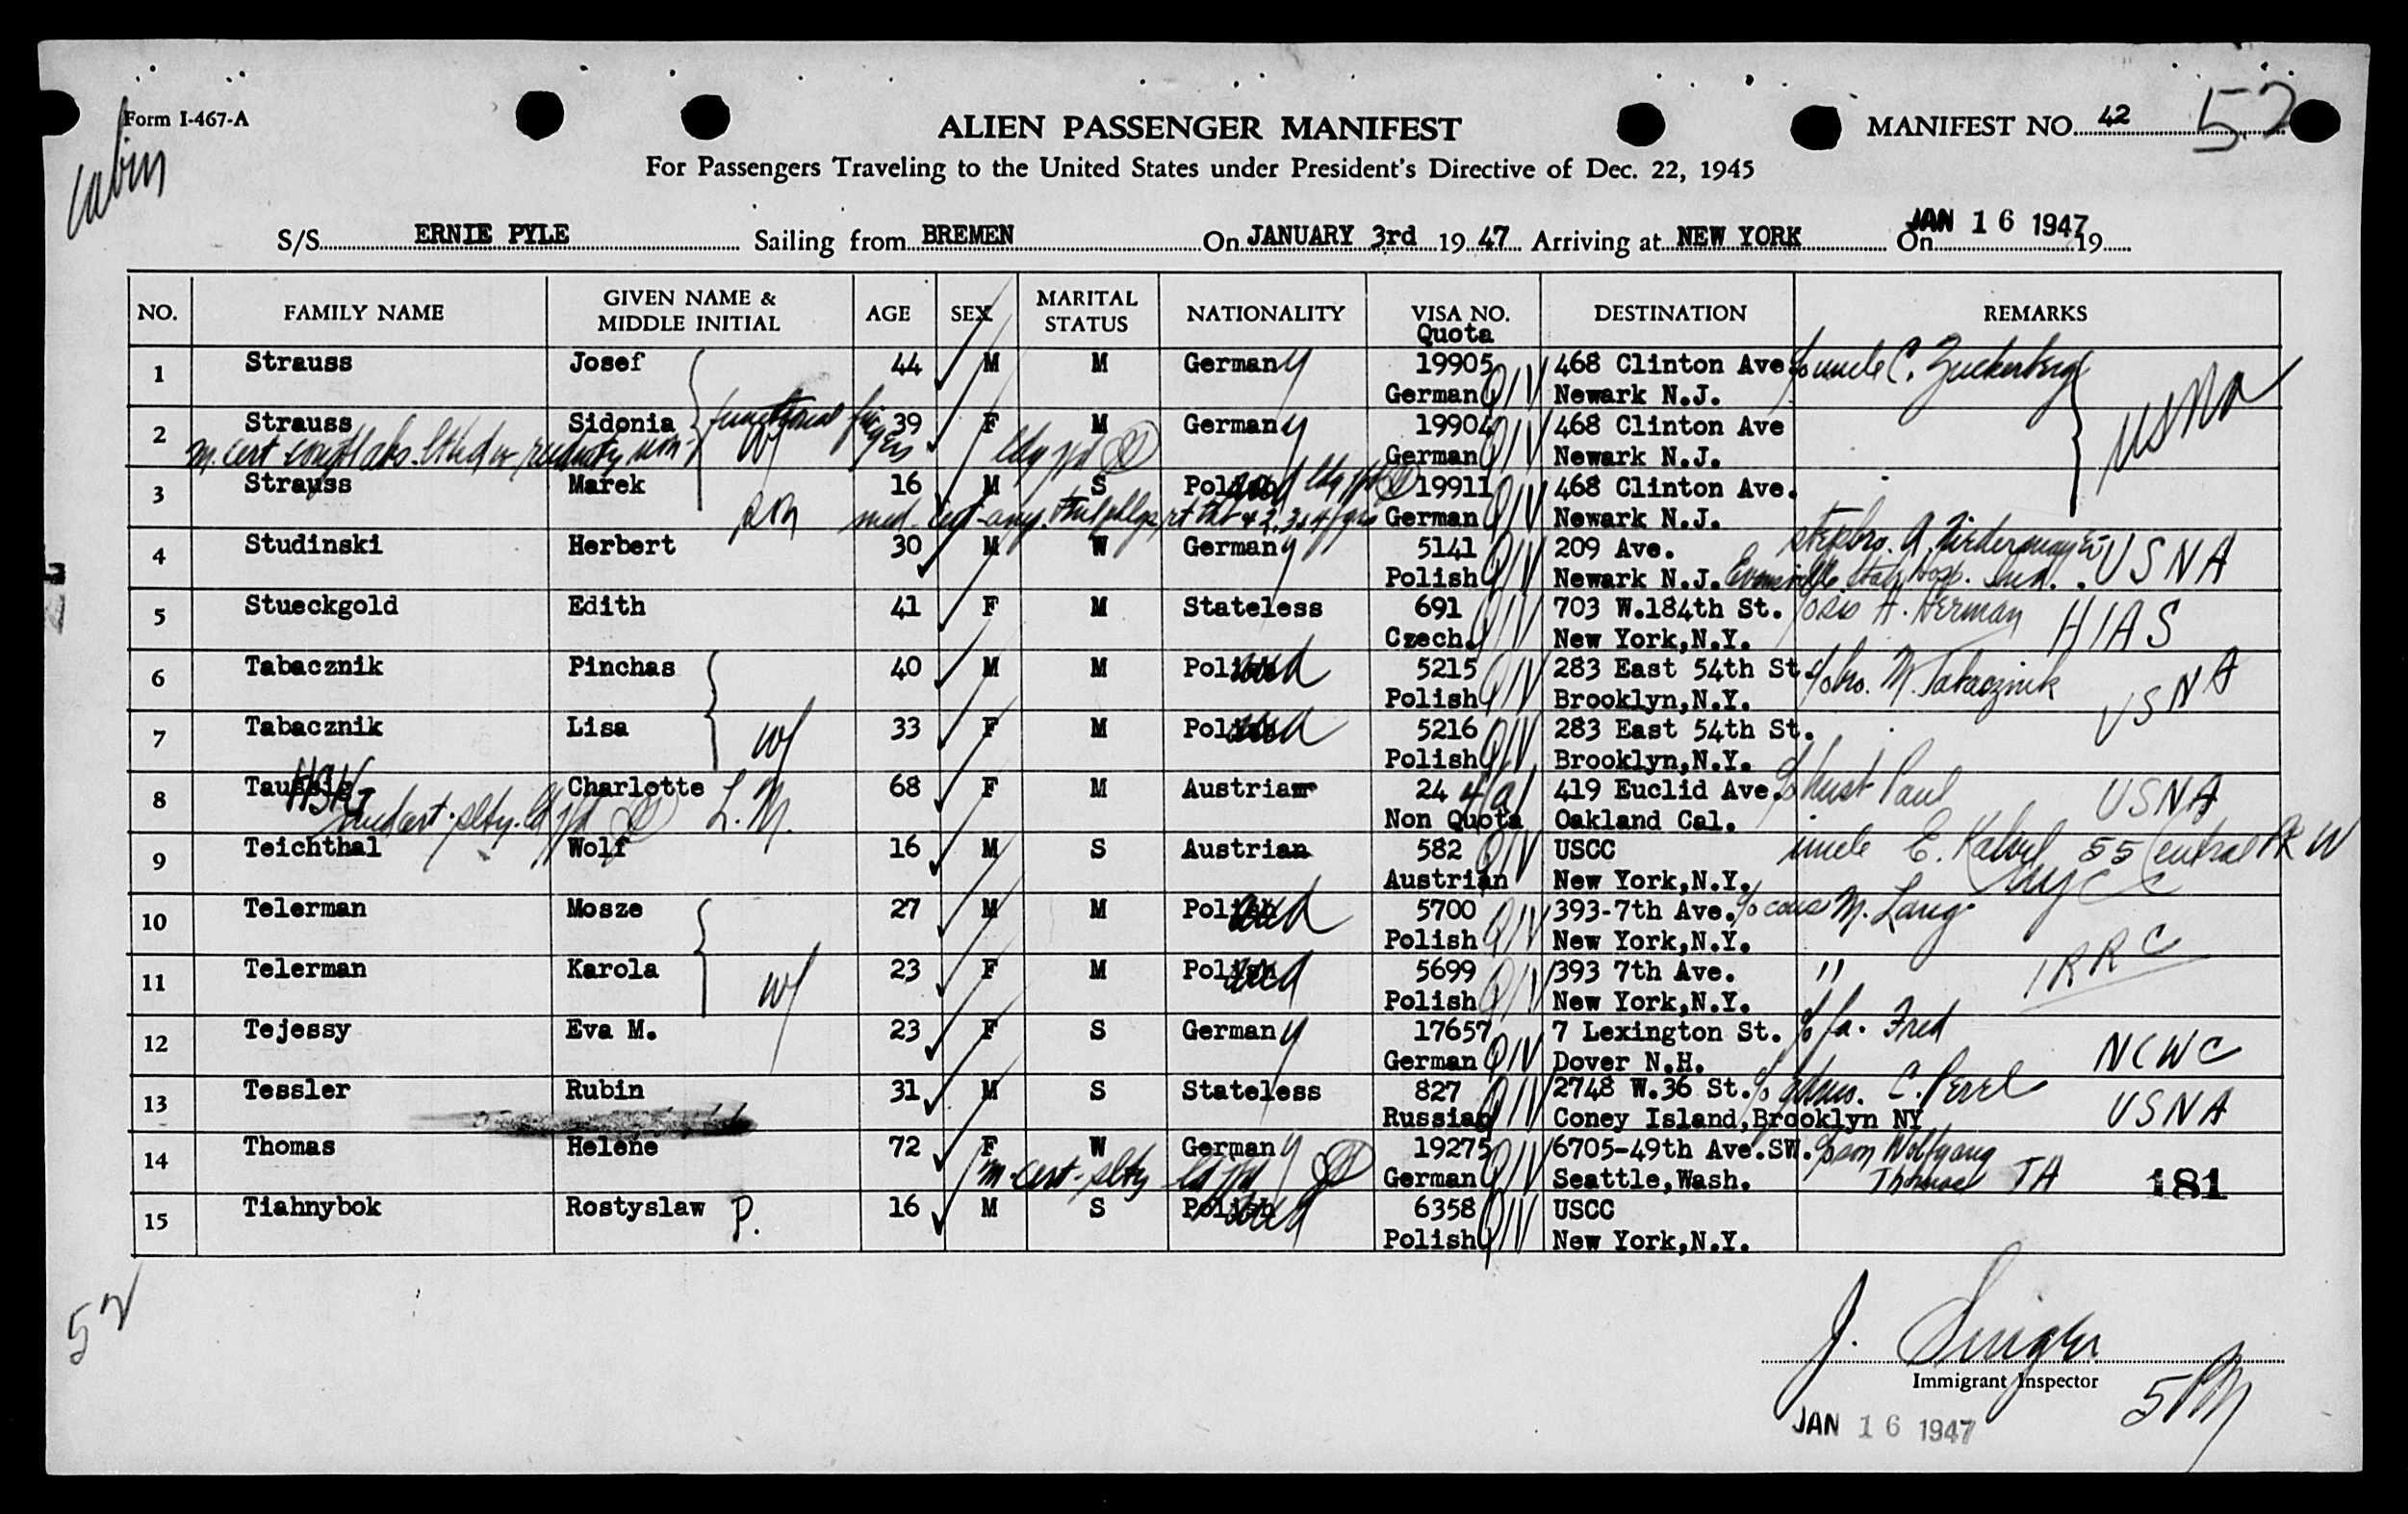 Form I-467-A
ALIEN PASSENGER MANIFEST
MANIFEST NO. 42 52
For Passengers Traveling to the United States under President's Directive of Dec. 22, 1945
Cabin
S/S ERNIE PYLE Sailing from BREMEN On JANUARY 3rd 19 47 Arriving at NEW YORK On JAN 16 1947 19
NO. FAMILY NAME GIVEN NAME & MIDDLE INITIAL AGE SEX MARITAL STATUS NATIONALITY VISA NO. DESTINATION REMARKS
Quota
1 Strauss Josef 44 M M Germany 19905 468 Clinton Ave c/o uncle C. Zuckerberg
German QIV Newark N.J. USNA
2 Strauss Sidonia 39 F M Germany 19904 468 Clinton Ave
functional fingers
m. cert W German QIV Newark N.J.
3 Strauss Marek 16 M S Poland 19911 468 Clinton Ave.
son med. cert German QIV Newark N.J.
4 Studinski Herbert 30 M W Germany 5141 209 Ave. stepbro. A. USNA
Polish QIV Newark N.J. Evansville State Hosp. Ind.
5 Stueckgold Edith 41 F M Stateless 691 703 W.184th St. c/o sis H. Herman HIAS
Czech. QIV New York,N.Y.
6 Tabacznik Pinchas 40 M M Poland 5215 283 East 54th St. c/o bro. M. Tabacznik USNA
Polish QIV Brooklyn,N.Y.
7 Tabacznik Lisa W 33 F M Poland 5216 283 East 54th St.
Polish QIV Brooklyn,N.Y.
8 Taussig Charlotte L.M. 68 F M Austria 24 4(a) 419 Euclid Ave. c/o husb Paul USNA
Non Quota Oakland Cal.
9 Teichthal Wolf 16 M S Austrian 582 QIV USCC uncle E. 55 Central Pk W
Austrian New York,N.Y. NYC
10 Telerman Mosze 27 M M Poland 5700 393-7th Ave. c/o cous M. Lang
Polish QIV New York,N.Y. IRRC
11 Telerman Karola W 23 F M Poland 5699 393 7th Ave. "
Polish QIV New York,N.Y.
12 Tejessy Eva M. 23 F S Germany 17657 7 Lexington St. c/o fa. Fred NCWC
German QIV Dover N.H.
13 Tessler Rubin 31 M S Stateless 827 2748 W.36 St. c/o C. USNA
Russian QIV Coney Island,Brooklyn NY
14 Thomas Helene 72 F W Germany 19275 6705-49th Ave.SW. c/o son Wolfgang
m-cert-slty German QIV Seattle,Wash. Thomas TA 181
15 Tiahnybok Rostyslaw P. 16 M S Poland 6358 USCC
Polish QIV New York,N.Y.
52
J. Singer
Immigrant Inspector
JAN 16 1947
5 PM